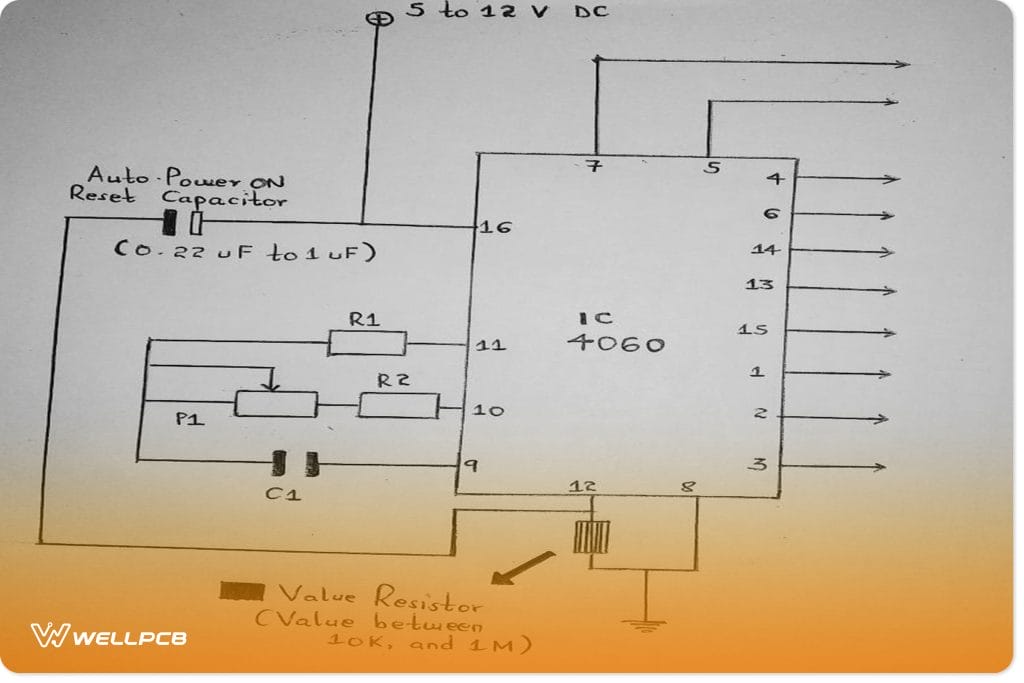 5 to 12 V DC
7
5
Auto Power ON
Reset Capacitor
(0.22 uF to 1 uF)
16
4
6
14
13
R1
11
IC
4060
15
1
R2
10
P1
2
9
3
C1
12
8
Value Resistor
(Value between
10K, and 1M)
WELLPCB